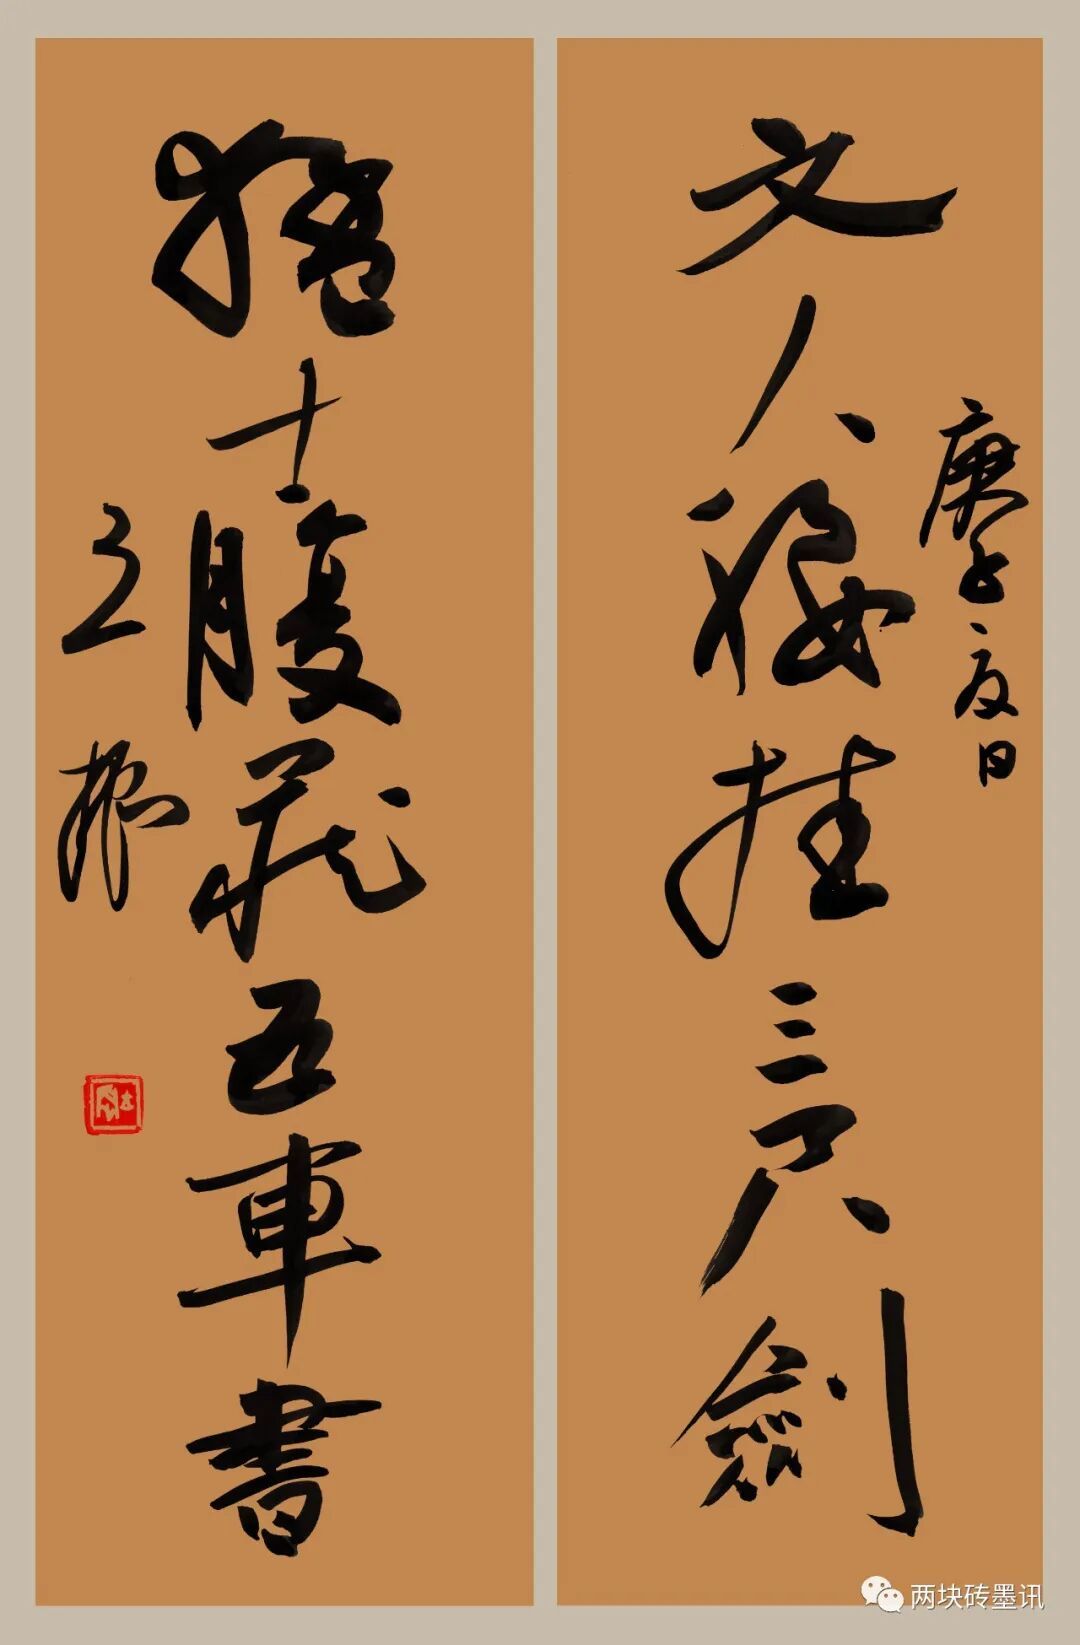 文人腰挂三尺劍
庚子夏日
猛士腹藏五車書
两块砖墨讯